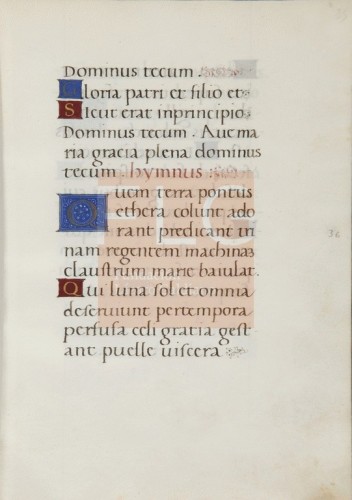 Dominus tecum.
Gloria patri et filio et s
Sicut erat inprincipio
Dominus tecum. Aue ma
ria gracia plena dominus
tecum. hymnus:
Quem terra pontus
ethera colunt ado
rant predicant tri
nam regentem machinas
claustrum marie baiulat.
Qui luna sol et omnia
deseruiunt pertempora
perfusa celi gratia gest
ant puelle uiscera